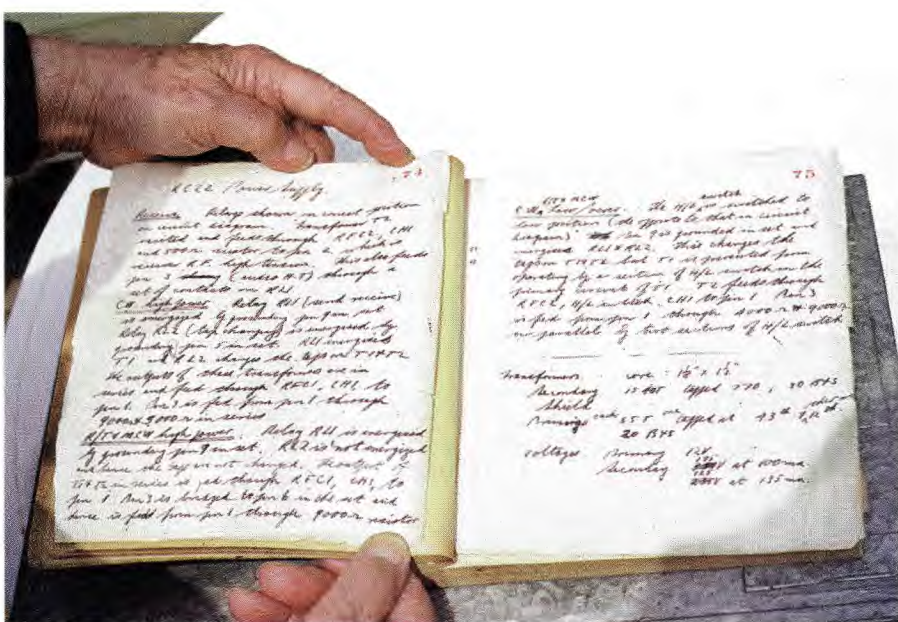 74
RC22 Power Supply
Receive Relay shown in correct position
in circuit diagram. Transformer T2
rectified and feeds through RFC2, CH1
and 500 Ω resistor to pin 2 which is
receiver R.F. high tension. This also feeds
pin 3 (under H.T.) through a
set of contacts on RL1
CW high power Relay RL1 (send receive)
is energized by grounding pin 9 on set
Relay RL2 (tap change) is energized by
grounding pin 5 in set. RL1 energized
T1 and RL2 changes the taps on T1 & T2
the outputs of these transformers are in
series and fed through RFC1, CH1, to
pin 1. Pin 3 is fed from pin 1 through
9000 + 9000 Ω in series
R/T & MCW high power. Relay RL1 is energized
by grounding pin 9 in set. RL2 is not energized
and hence the taps are not changed. The output of
in series is fed through RFC1, CH1, to
pin 1. Pin 3 is bridged to pin 6 in the set and
hence is fed from pin 1 through 9000 Ω resistor
75
R/T & MCW
CW low power. The H/L switch is switched to
low position (the opposite to that in circuit
diagram). Pin 9 is grounded in set and
energizes RL1 & RL2. This changes the
taps on T1 & T2 but T1 is prevented from
operating by a section of H/L switch in the
primary circuit of T1. T2 feeds through
RFC2, H/L switch, CH1 to pin 1. Pin 3
is fed from pin 1 through 4000 Ω & 9000 Ω
in parallel by two sections of H/L switch
Transformers core 1½" x 1½"
Secondary tapped 770, 30 B&S
Shield
Primary each 55T tapped at 43rd
20 B&S
Voltages Primary 12V
Secondary at 100ma.
at 135 ma.